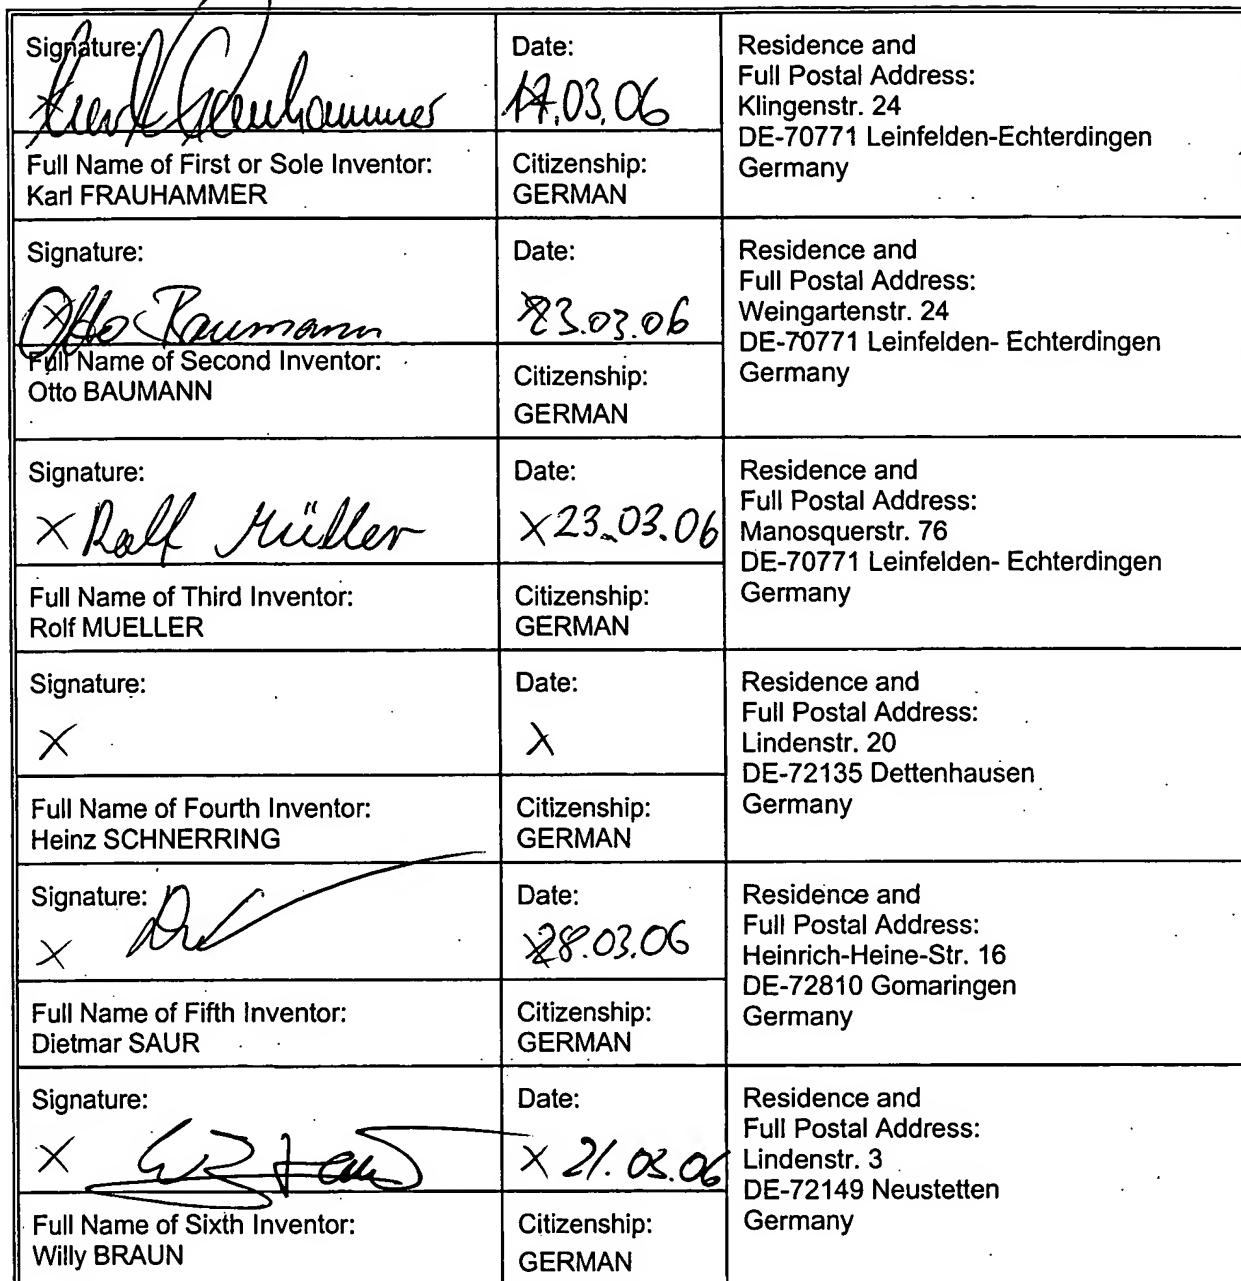 Signature:
Karl Frauhammer
Date:
17.03.06
Residence and
Full Postal Address:
Klingenstr. 24
DE-70771 Leinfelden-Echterdingen
Germany
Full Name of First or Sole Inventor:
Karl FRAUHAMMER
Citizenship:
GERMAN
Signature:
X Otto Baumann
Date:
X 23.03.06
Residence and
Full Postal Address:
Weingartenstr. 24
DE-70771 Leinfelden- Echterdingen
Germany
Full Name of Second Inventor:
Otto BAUMANN
Citizenship:
GERMAN
Signature:
X Rolf Müller
Date:
X 23.03.06
Residence and
Full Postal Address:
Manosquerstr. 76
DE-70771 Leinfelden- Echterdingen
Germany
Full Name of Third Inventor:
Rolf MUELLER
Citizenship:
GERMAN
Signature:
X
Date:
X
Residence and
Full Postal Address:
Lindenstr. 20
DE-72135 Dettenhausen
Germany
Full Name of Fourth Inventor:
Heinz SCHNERRING
Citizenship:
GERMAN
Signature:
X
Date:
X 28.03.06
Residence and
Full Postal Address:
Heinrich-Heine-Str. 16
DE-72810 Gomaringen
Germany
Full Name of Fifth Inventor:
Dietmar SAUR
Citizenship:
GERMAN
Signature:
X
Date:
X 21.03.06
Residence and
Full Postal Address:
Lindenstr. 3
DE-72149 Neustetten
Germany
Full Name of Sixth Inventor:
Willy BRAUN
Citizenship:
GERMAN